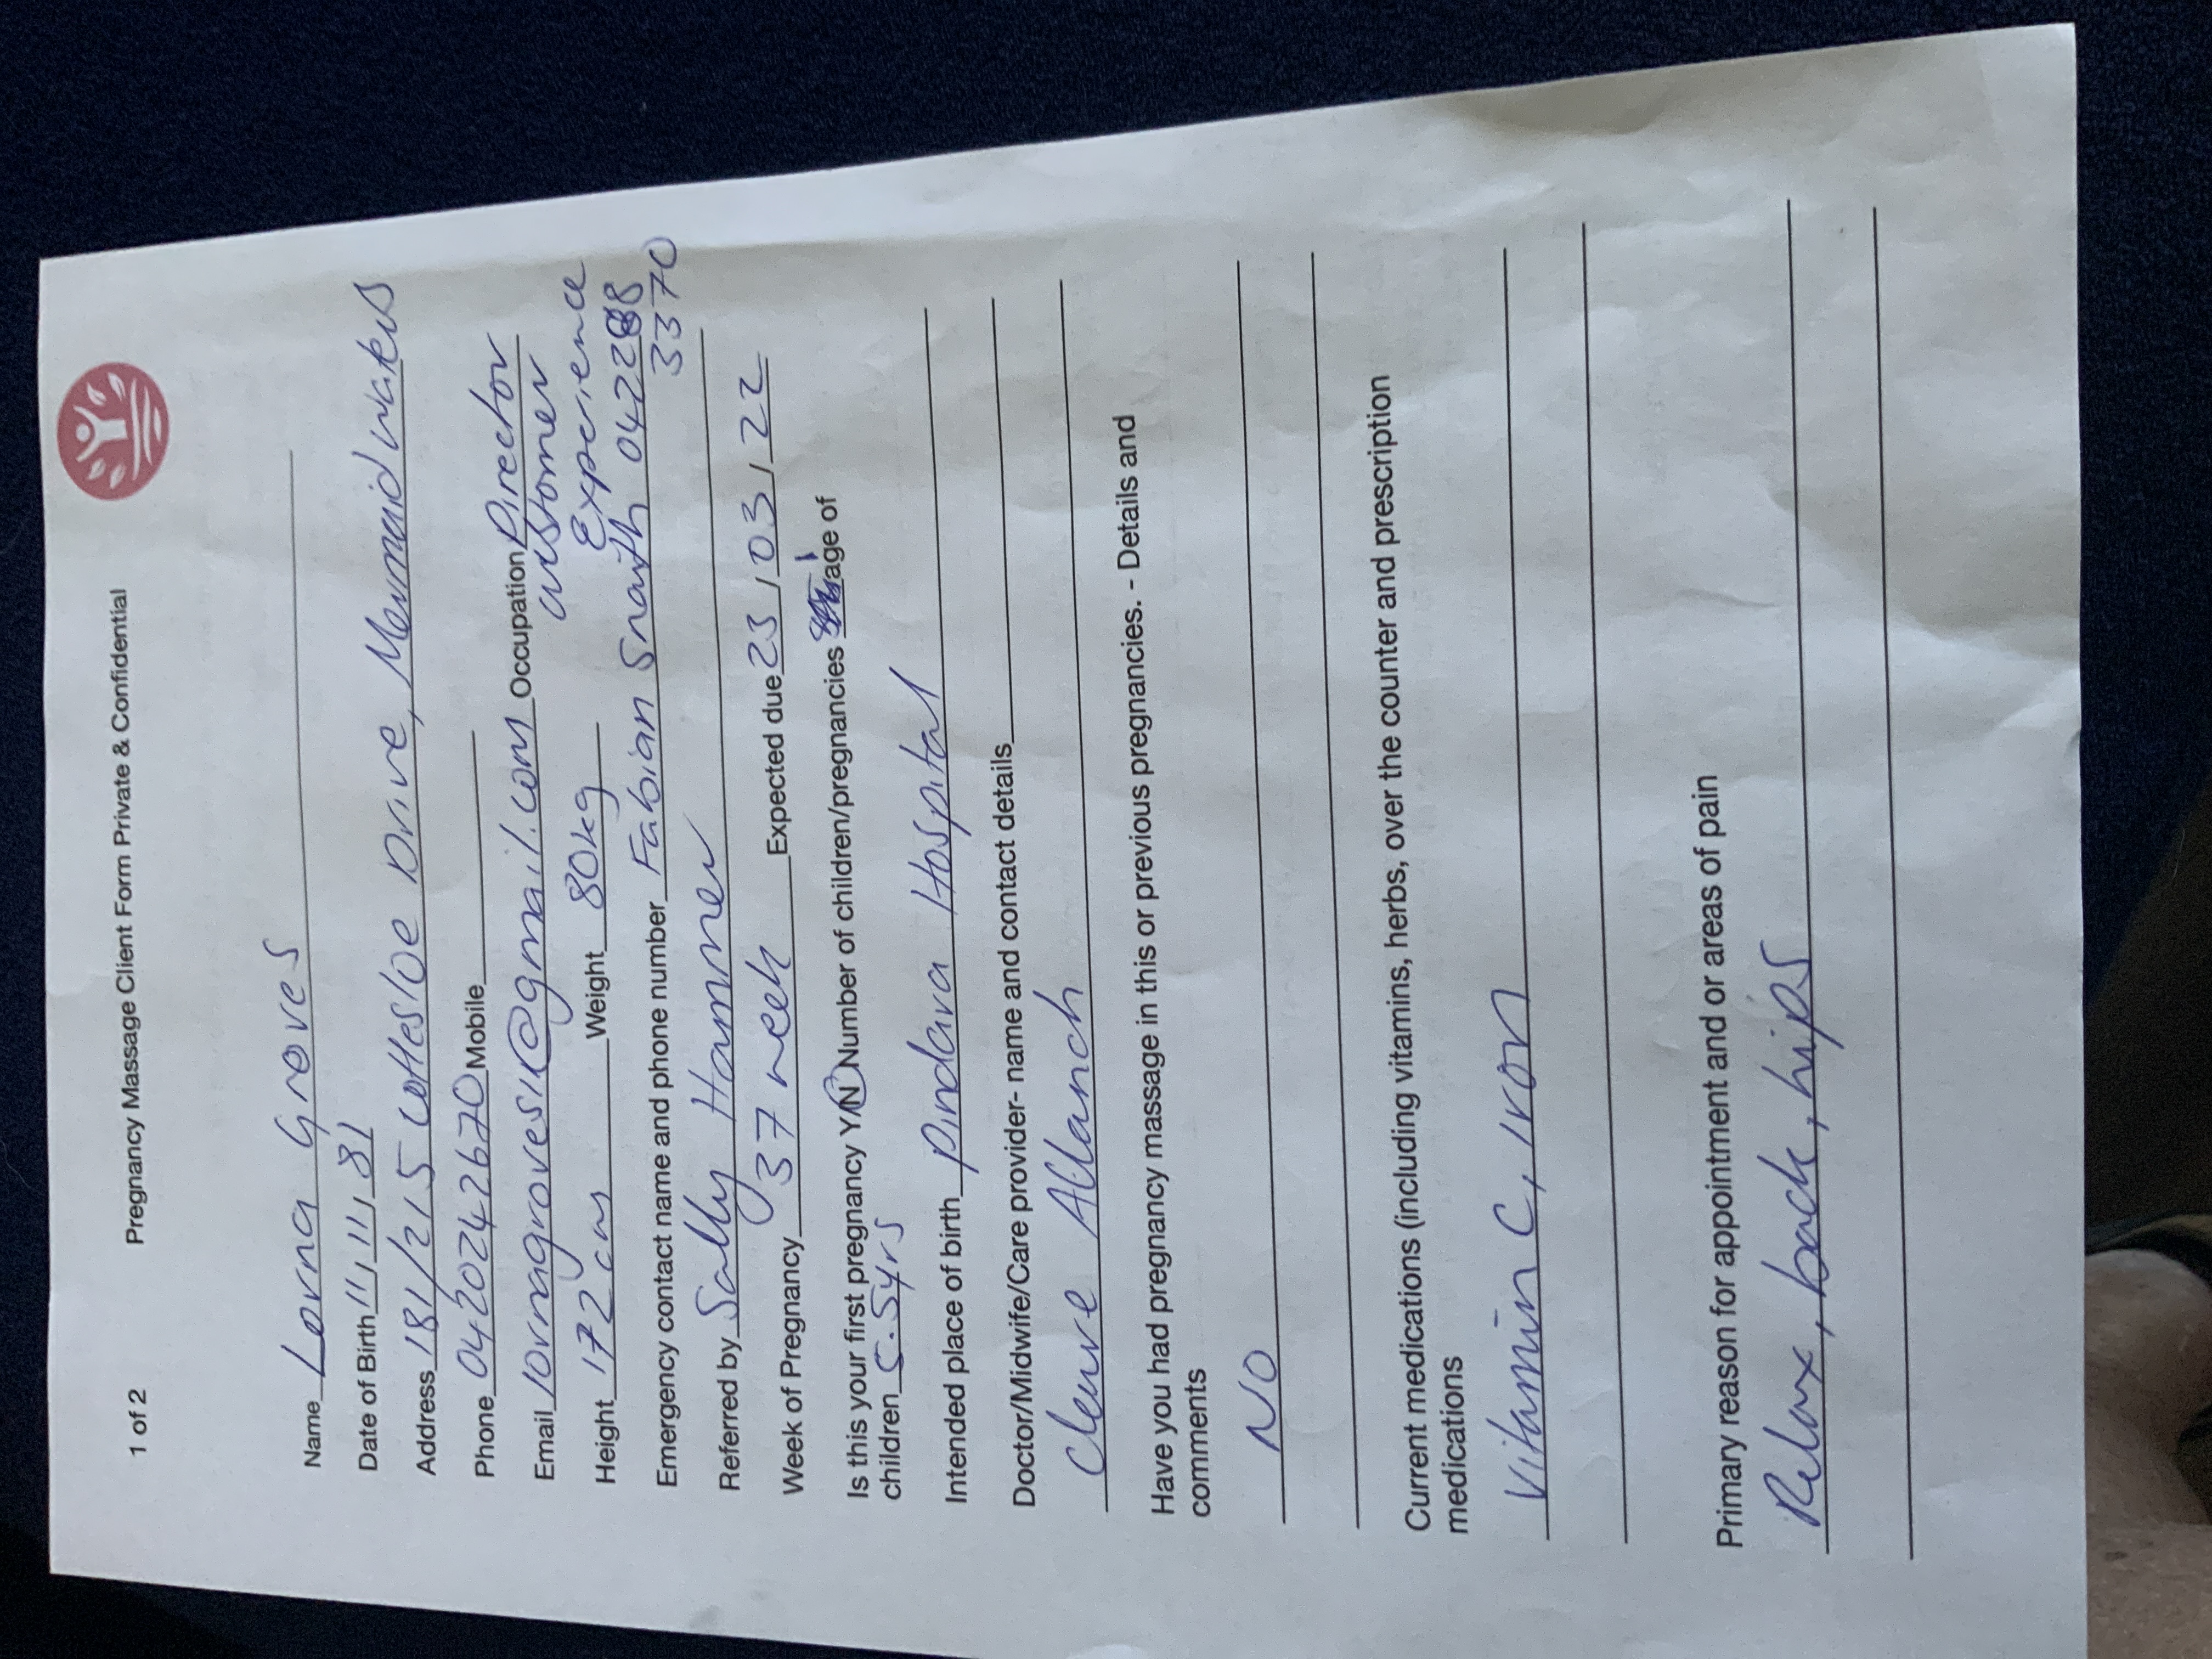 1 of 2 Pregnancy Massage Client Form Private & Confidential
Name Lorna Groves
Date of Birth 11/11/81
Address 181/215 Cottesloe Drive, Mermaid Waters
Phone 0420242670 Mobile
Email lornagroves1@gmail.com Occupation Director
Customer
Experience
Height 172cm Weight 80kg
Emergency contact name and phone number Fabian Snaith 042288
3370
Referred by Sally Hammer
Week of Pregnancy 37 week Expected due 23/03/22
Is this your first pregnancy Y/N Number of children/pregnancies age of
children 5.5yrs
Intended place of birth Pindara Hospital
Doctor/Midwife/Care provider- name and contact details
Allanch
Have you had pregnancy massage in this or previous pregnancies. - Details and
comments
NO
Current medications (including vitamins, herbs, over the counter and prescription
medications
Vitamin C, Iron
Primary reason for appointment and or areas of pain
Relax, back, hips